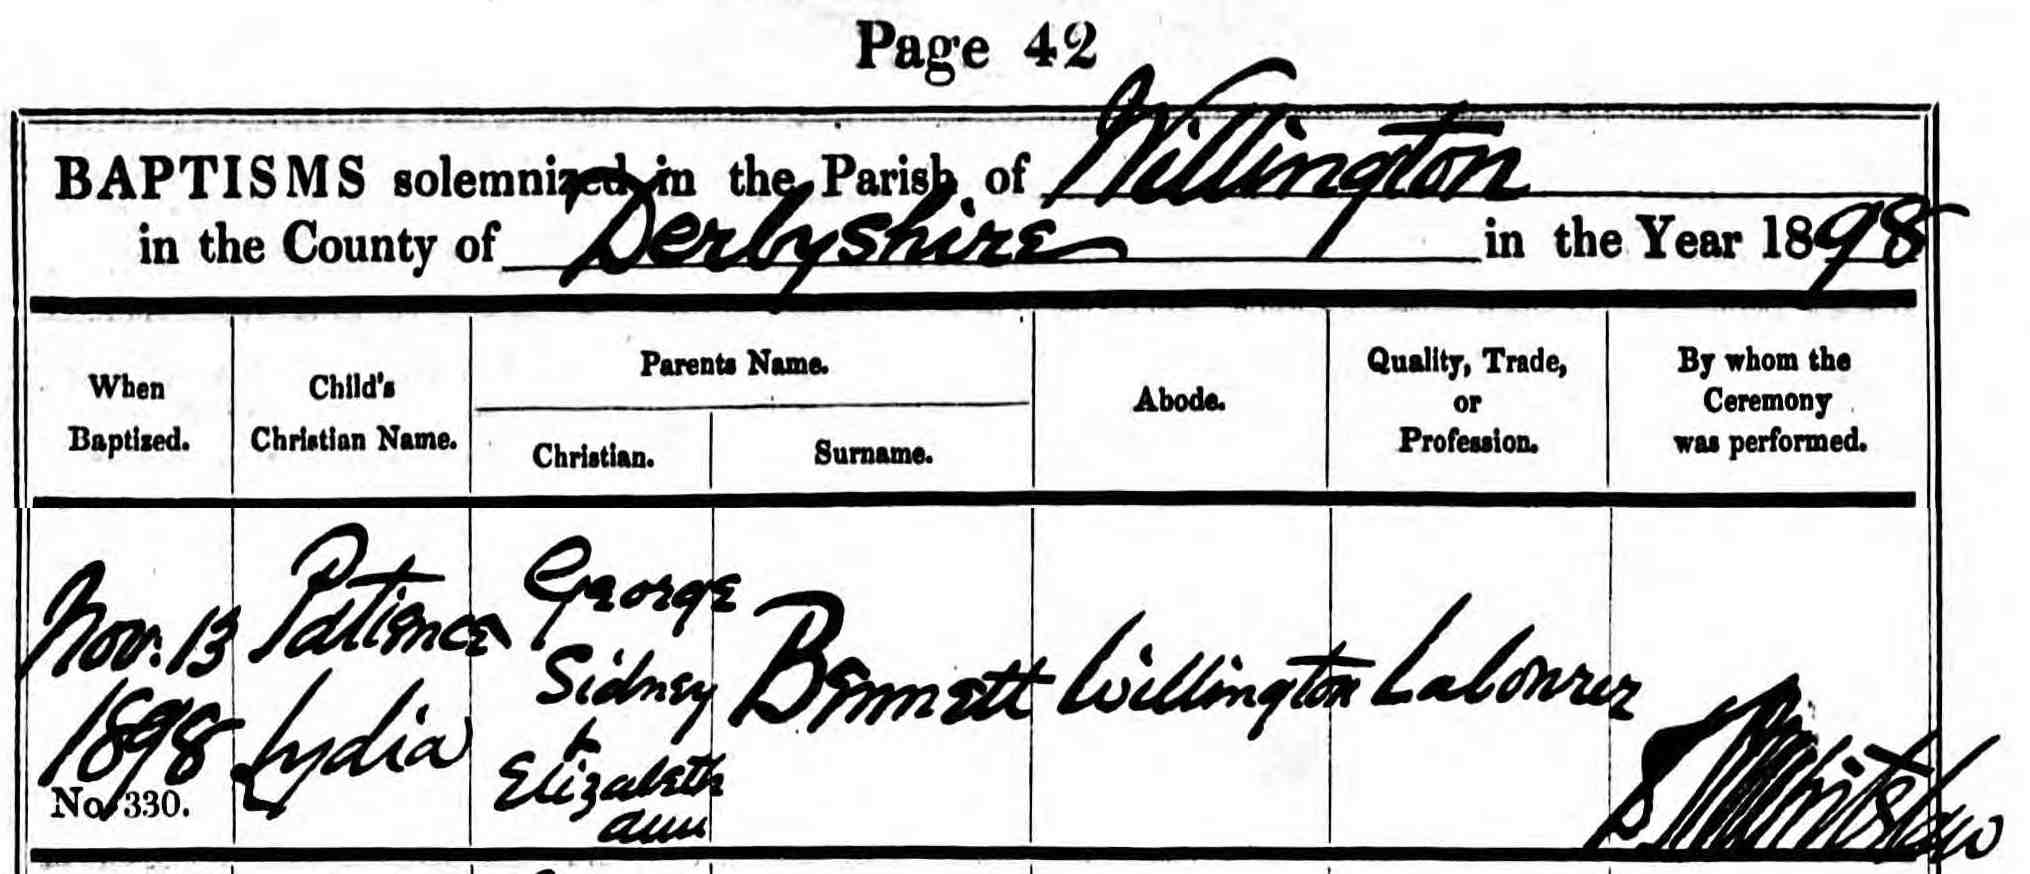 Page 42
BAPTISMS solemnized in the Parish of Willington
in the County of Derbyshire in the Year 1898
When Baptized.
Child's Christian Name.
Parents Name.
Christian.
Surname.
Abode.
Quality, Trade, or Profession.
By whom the Ceremony was performed.
Nov. 13
1898
No. 330.
Patience
Lydia
George
Sidney
&
Elizabeth
Ann
Bennett
Willington
Labourer